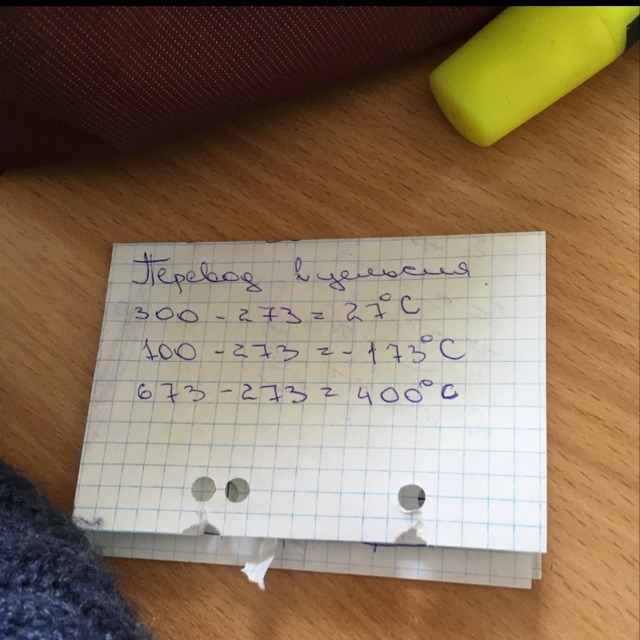 Перевод в цельсия.
300 - 273 = 27°C
100 - 273 = -173°C
673 - 273 = 400°C